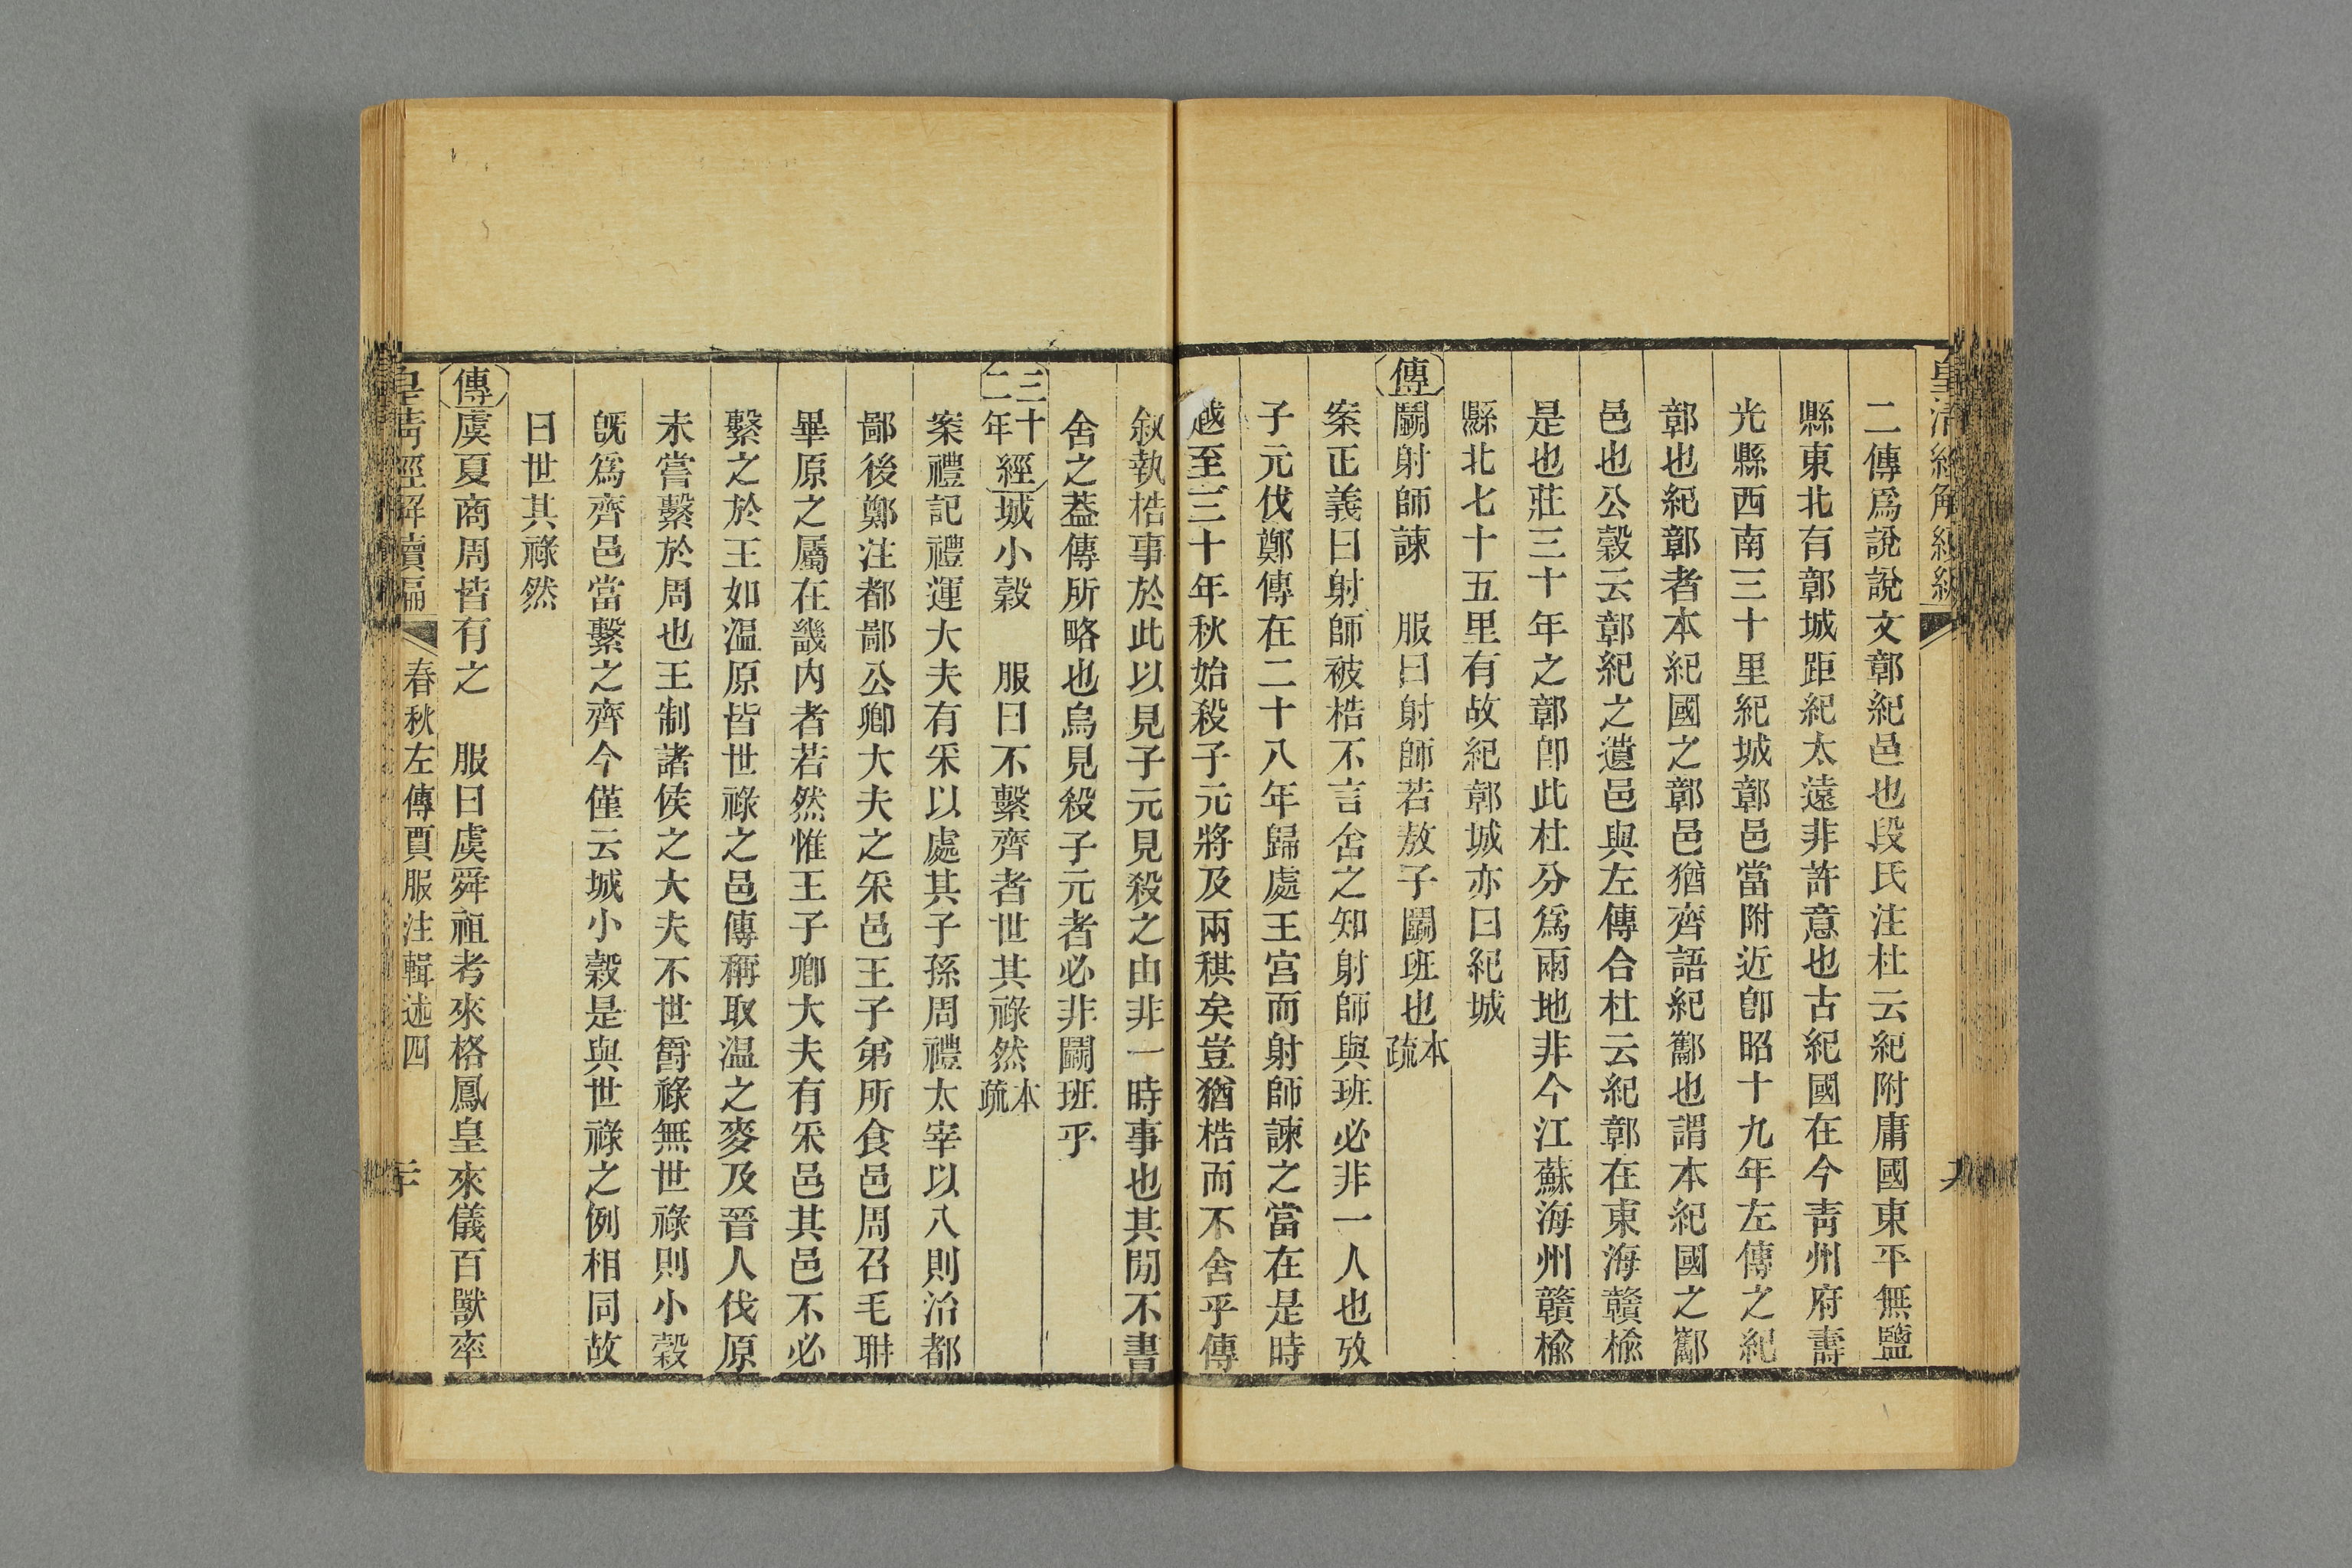 二傳爲說說文鄣紀邑也段氏注杜云紀附庸國東平無鹽
縣東北有鄣城距紀太遠非許意也古紀國在今靑州府壽
光縣西南三十里紀城鄣邑當附近卽昭十九年左傳之紀
鄣也紀鄣者本紀國之鄣邑猶齊語紀酅也謂本紀國之酅
邑也公穀云鄣紀之遺邑與左傳合杜云紀鄣在東海贛榆
是也莊三十年之鄣卽此杜分爲兩地非今江蘇海州贛榆
縣北七十五里有故紀鄣城亦曰紀城
傳鬭射師諫　服曰射師若敖子鬭班也本疏
案正義曰射師被梏不言舍之知射師與班必非一人也攷
子元伐鄭傳在二十八年歸處王宮而射師諫之當在是時
越至三十年秋始殺子元將及兩稘矣豈猶梏而不舍乎傳
敍執梏事於此以見子元見殺之由非一時事也其閒不書
舍之葢傳所略也烏見殺子元者必非鬭班乎
三十二年經城小穀　服曰不繫齊者世其祿然本疏
案禮記禮運大夫有采以處其子孫周禮太宰以八則治都
鄙後鄭注都鄙公卿大夫之采邑王子弟所食邑周召毛聃
畢原之屬在畿內者若然惟王子卿大夫有采邑其邑不必
繫之於王如温原皆世祿之邑傳稱取温之麥及晉人伐原
未嘗繫於周也王制諸侯之大夫不世爵祿無世祿則小穀
旣爲齊邑當繫之齊今僅云城小穀是與世祿之例相同故
曰世其祿然
傳虞夏商周皆有之　服曰虞舜祖考來格鳳皇來儀百獸率
皇淸經解續編　春秋左傳賈服注輯述四